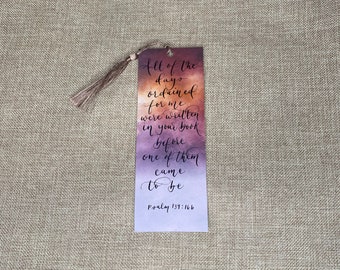 All of the
days
ordained
for me
were written
in your book
before
one of them
came
to be
Psalm 139:16b